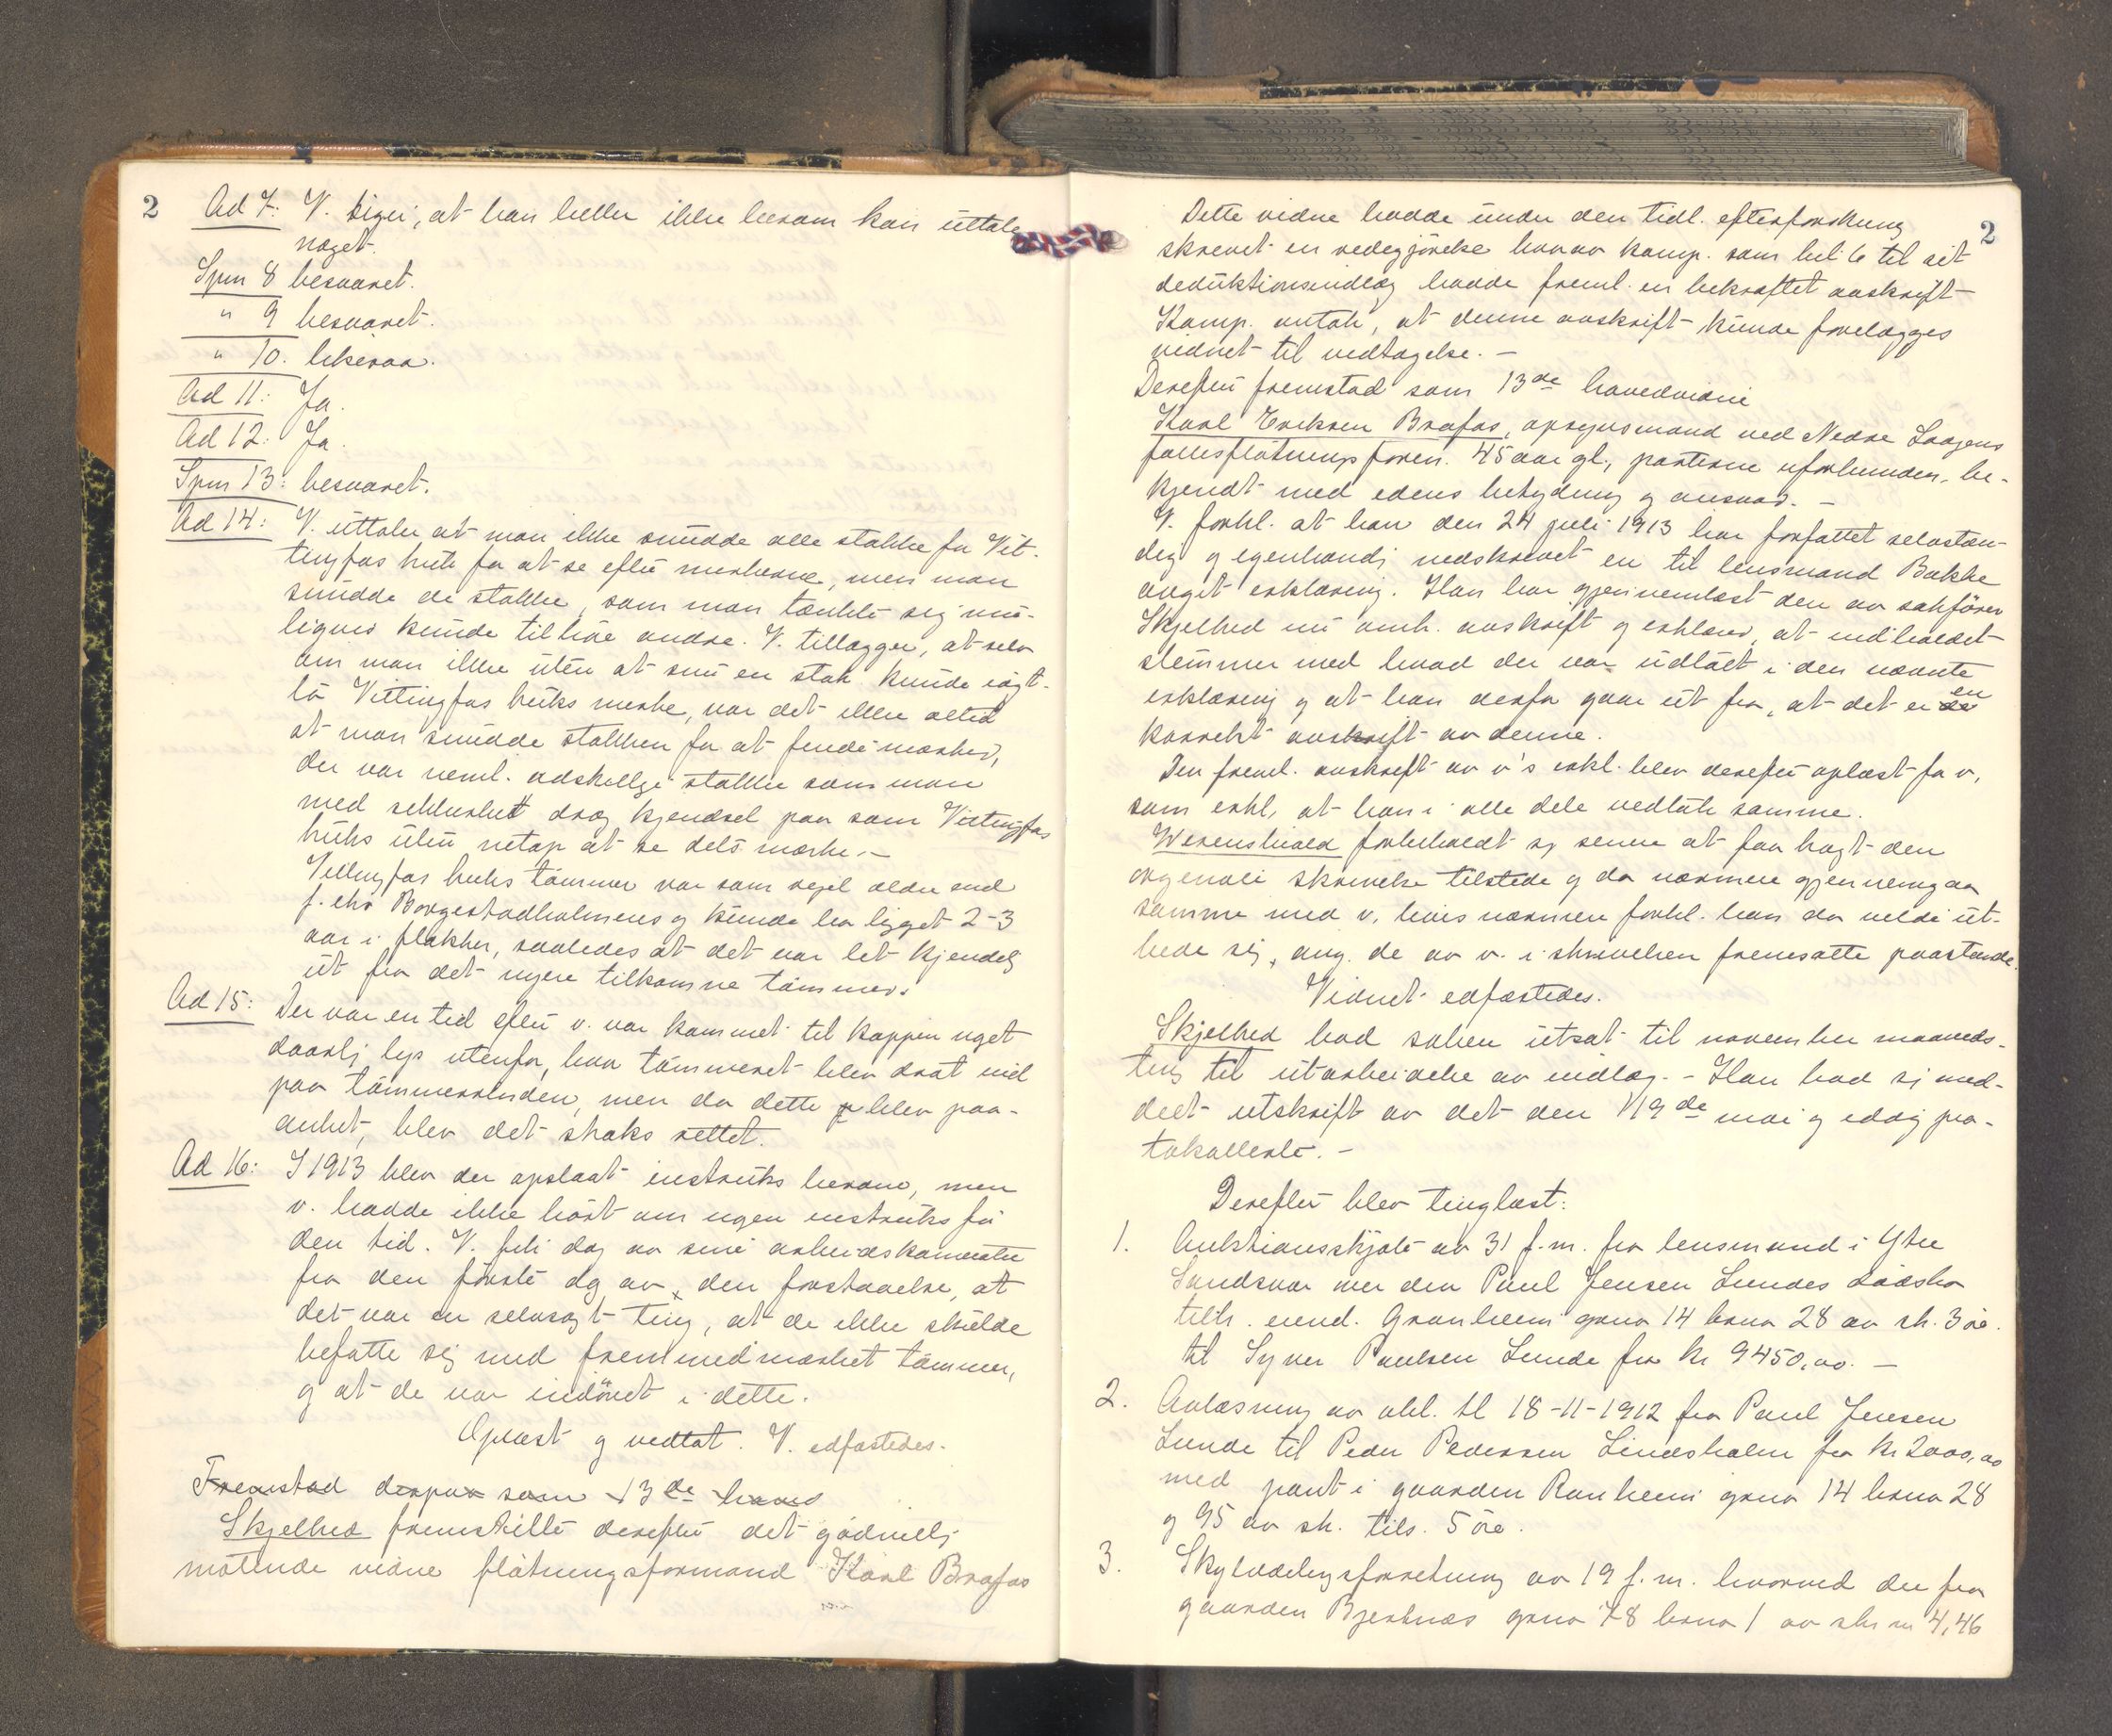 2
Ad 7: V. siger, at han heller ikke herom kan uttale
noget.
Spm 8 besvaret.
" 9 besvaret.
" 10. likesaa.
Ad 11: Ja.
Ad 12: Ja.
Spm 13: besvaret.
Ad 14: V. uttaler at man ikke snudde alle stokke fra Vit-
tingfos bruk for at se efter merkerne, men man
snudde de stokke, som man tænkte sig mu-
ligens kunde tilhøre andre. V. tillægger, at selv
om man ikke uten at snu en stok kunde iagt-
ta Vittingfos bruks merke, var det ikke altid
at man snudde stokken for at finde merket,
der var neml. adskillige stokke som man
med sikkerhet drog kjendsel paa som Vittingfos
bruks uten netop at se dets merke.-
Vittingfos bruks tømmer var som regel ældre end
f. eks Borgestadholmens og kunde ha ligget 2-3
aar i flokker, saaledes at det var let kjendelig
ut fra det nyere tilkomne tømmer.
Ad 15: Der var en tid efter v. var kommet til Koppen noget
daarlig lys utenfor, hvor tømmeret blev drat ind
paa tømmerrenden, men da dette blev paa-
anket, blev det straks rettet.
Ad 16: I 1913 blev der opslaat instruks herom, men
v. hadde ikke hørt om nogen instruks før
den tid. V. fik dog av sine arbeidskamerater
fra den første dag av, den forstaaelse, at
det var en selvsagt ting, at de ikke skulde
befatte sig med fremmedmerket tømmer,
og at de var indøvet i dette.
Oplæst og vedtat. V. edfæstedes.
Fremstod derpaa som 13de hoved
Skjelbred fremstillte derefter det godvillig
møtende vidne fløtningsformand Karl Brafos
2
Dette vidne hadde under den tidl. efterforskning
skrevet en redegjørelse hvorav komp. som bil. 6 til sit
deduktionsindlæg hadde freml. en bekræftet avskrift
Komp. antok, at denne avskrift kunde forelægges
vidnet til vedtagelse. -
Derefter fremstod som 13de hovedvidne
Karl Eriksen Brafos, opsynsmand ved Nedre Laagens
fællesfløtningsforen. 45 aar gl., parterne uforbunden, be-
kjendt med edens betydning og ansvar. -
V. forkl. at han den 24 juli 1913 har forfattet selvstæn-
dig og egenhændig nedskrevet en til lensmand Bakke
avgit erklæring. Han har gjennemlæst den av sakfører
Skjelbred nu omh. avskrift og erklærer, at indholdet
stemmer med hvad der var uttalt i den nævnte
erklæring og at han derfor gaar ut fra, at det er en
korrekt avskrift av denne.
Den freml. avskrift av v's erkl. blev derefter oplæst for v,
som erkl, at han i alle dele vedtok samme.
Werenskiold forbeholdt sig senere at faa bragt den
originale skrivelse tilstede og da nærmere gjennemgaa
samme med v. hvis nærmere forkl. han da vilde ut-
bede sig, ang. de av v. i skrivelsen fremsatte paastande.
Vidnet edfæstedes.
Skjelbred bad saken utsat til november maaneds-
ting til utarbeidelse av indlæg. - Han bad sig med-
delt utskrift av det den 19de mai og idag pro-
tokollerte. -
Derefter blev tinglæst:
1. Auktionsskjøte av 31 f.m. fra lensmand i Ytre
Sandsvær over den Paul Jensen Lundes dødsbo
tilh. eiend. Granheim gsno 14 bsno 28 av sk. 3 øre.
til Syver Paulsen Lunde for kr 9450,00. -
2. Avlæsning av obl. tl 18-11-1912 fra Paul Jensen
Lunde til Peder Pedersen Lindsholm for kr 2000,00
med pant i gaarden Ranheim gsno 14 bsno 28
og 95 av sk. tils. 5 øre.
3. Skylddelingsforretning av 19 f.m. hvorved der fra
gaarden Bjerknes gsno 78 bsno 1 av sk m 4,46